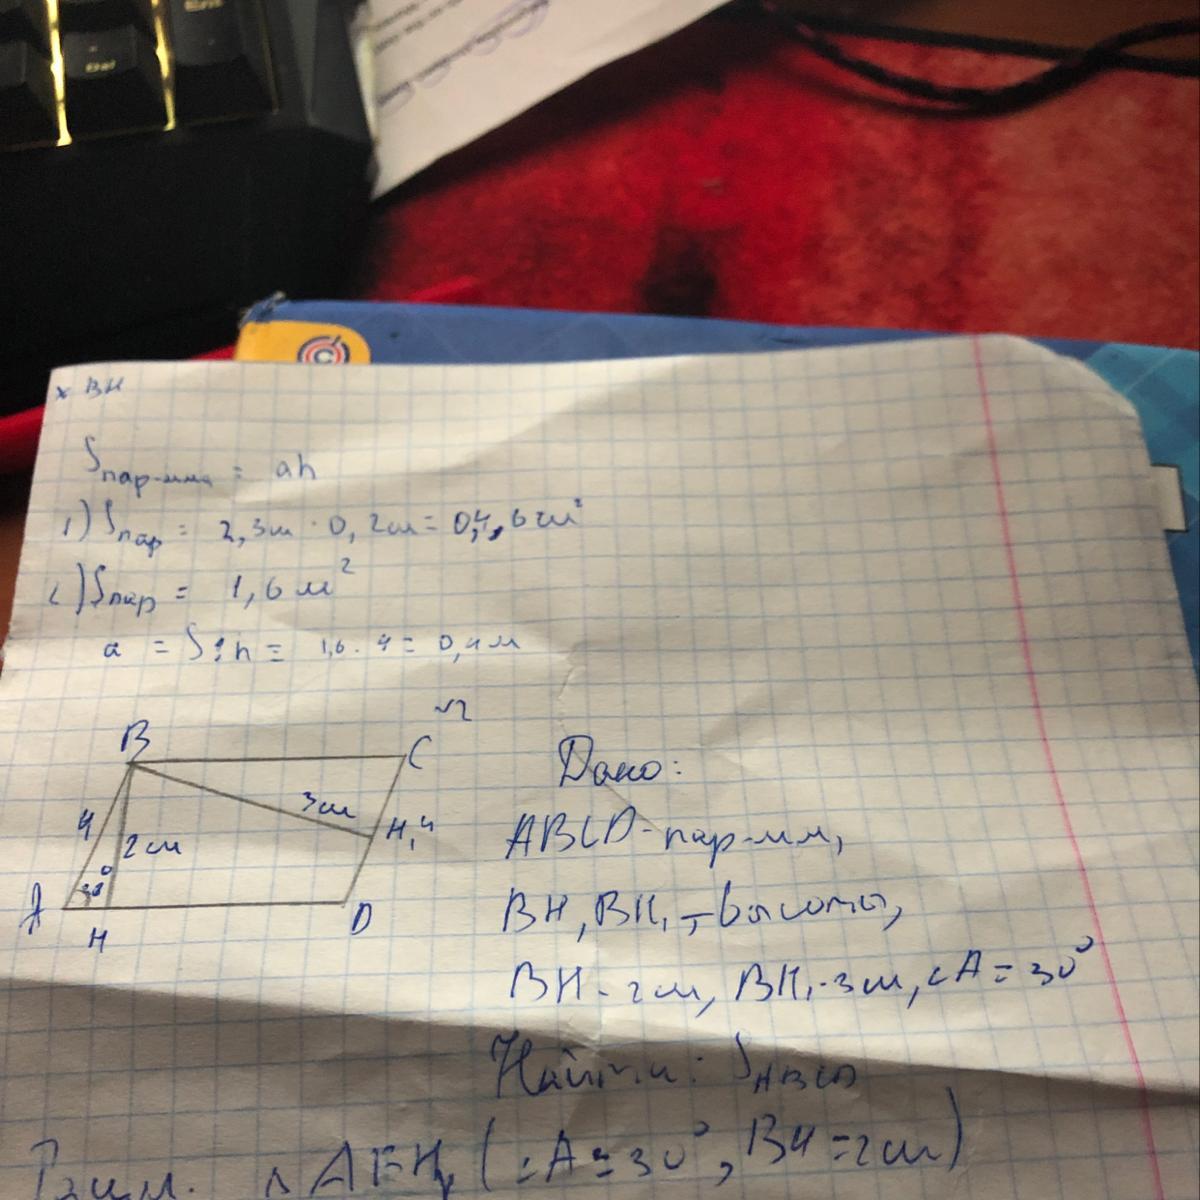 Del
C
x BH
Sпар-мма = ah
1) Sпар = 2,3см · 0,2см = 0,4,6см²
2) Sпар = 1,6 м²
a = S : h = 1,6 · 4 = 0,4м
√2
B
C
3см
4
H₁ 4
2см
30°
A
H
D
Дано:
ABCD - пар-мм,
BH, BH₁ - высоты,
BH - 2см, BH₁ - 3см, ∠A = 30°
Найти: SABCD
△ ABH, (∠A = 30°, BH = 2см)